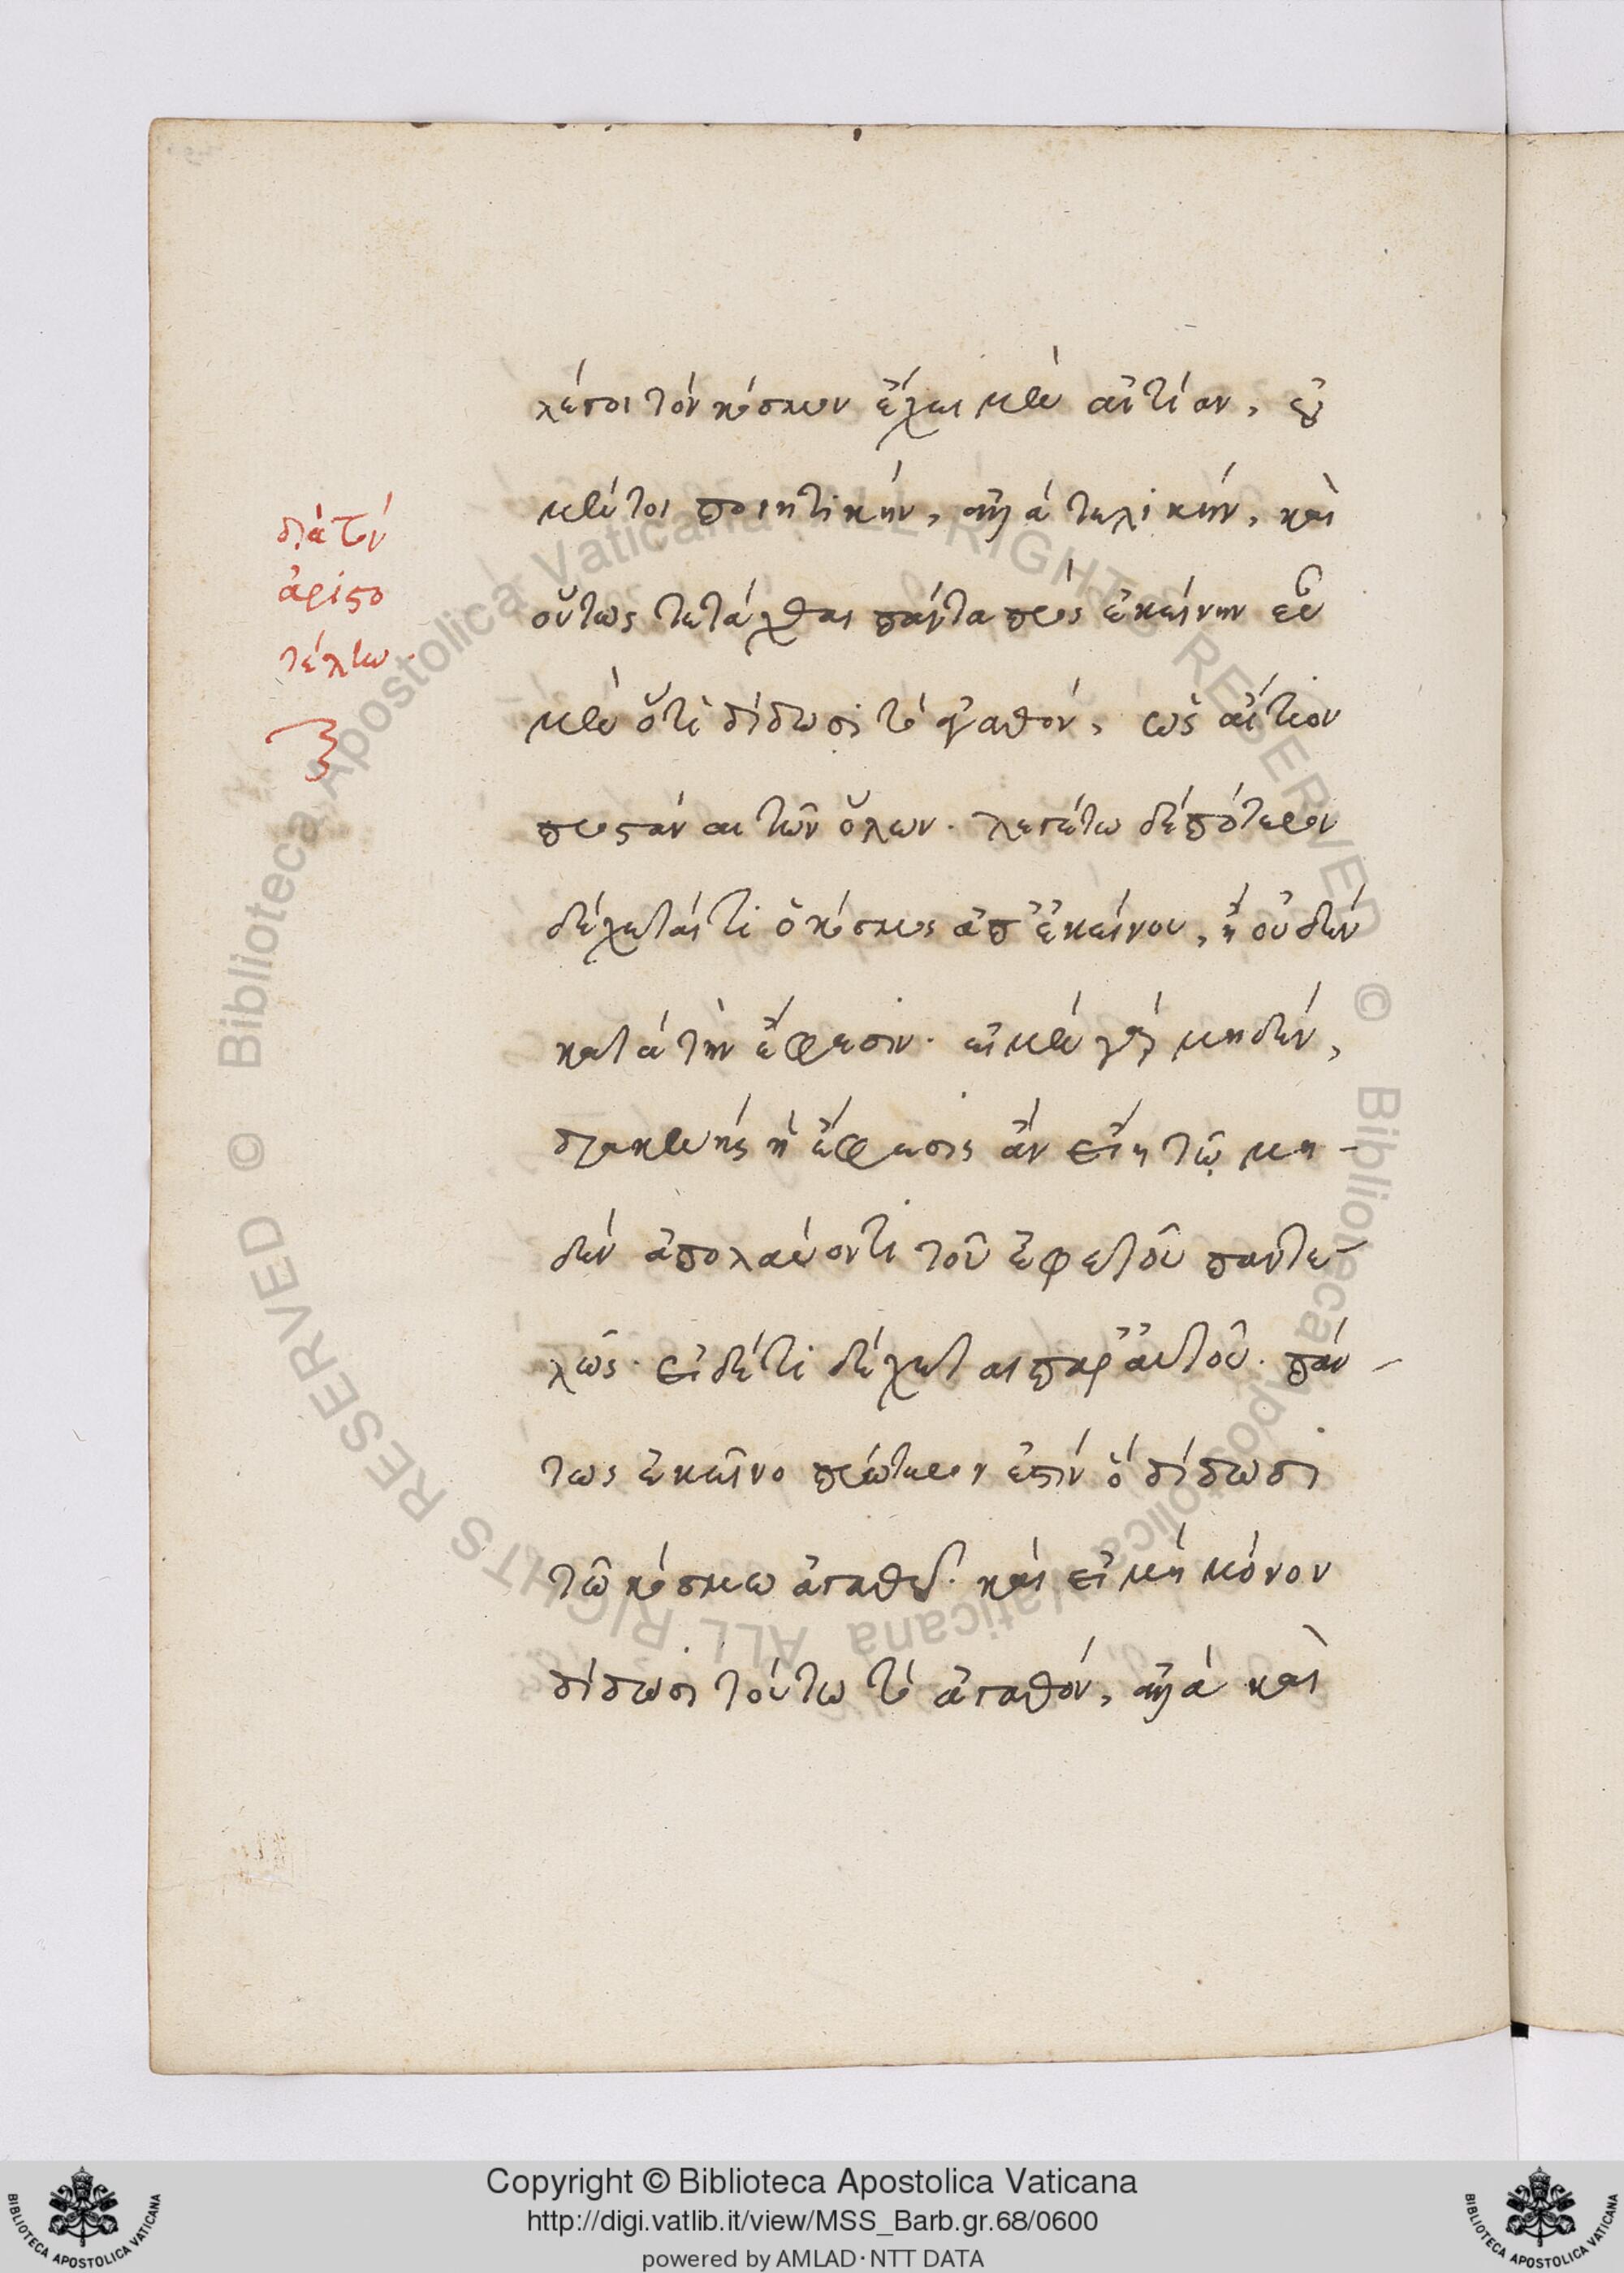 λέγοι τὸν κόσμον ἔχει μὲν αἰτίαν, οὐ
μέντοι ποιητικήν, ἀλλὰ τελικήν, καὶ
οὕτως τετάχθαι πάντα πρὸς ἐκείνην εὖ
μὲν ὅτι δίδωσι τἀγαθόν, ὡς αἴτιον
προστάναι τῶν ὅλων. λεγέτω δὲ πότερον
δέχεταί τι ὁ κόσμος ἀπ' ἐκείνου, ἢ οὐδὲν
κατὰ τὴν ἔφεσιν. εἰ μὲν γὰρ μηδέν,
διακενῆς ἡ ἔφεσις ἂν εἴη τῷ μη-
δὲν ἀπολαύοντι τοῦ ἐφετοῦ παντε-
λῶς. εἰ δέ τι δέχεται παρ' αὐτοῦ. πάν-
τως ἐκεῖνο πρότερον ἐστὶν ὃ δίδωσι
τῶ κόσμω ἀγαθόν. καὶ εἰ μὴ μόνον
δίδωσι τούτω τὸ ἀγαθόν, ἀλλὰ καὶ
διὰ τὸν
ἀριστο
τέλην
Copyright © Biblioteca Apostolica Vaticana
http://digi.vatlib.it/view/MSS_Barb.gr.68/0600
powered by AMLAD·NTT DATA
BIBLIOTECA APOSTOLICA VATICANA
BIBLIOTECA APOSTOLICA VATICANA
© Biblioteca Apostolica Vaticana ALL RIGHTS RESERVED © Biblioteca Apostolica Vaticana ALL RIGHTS RESERVED